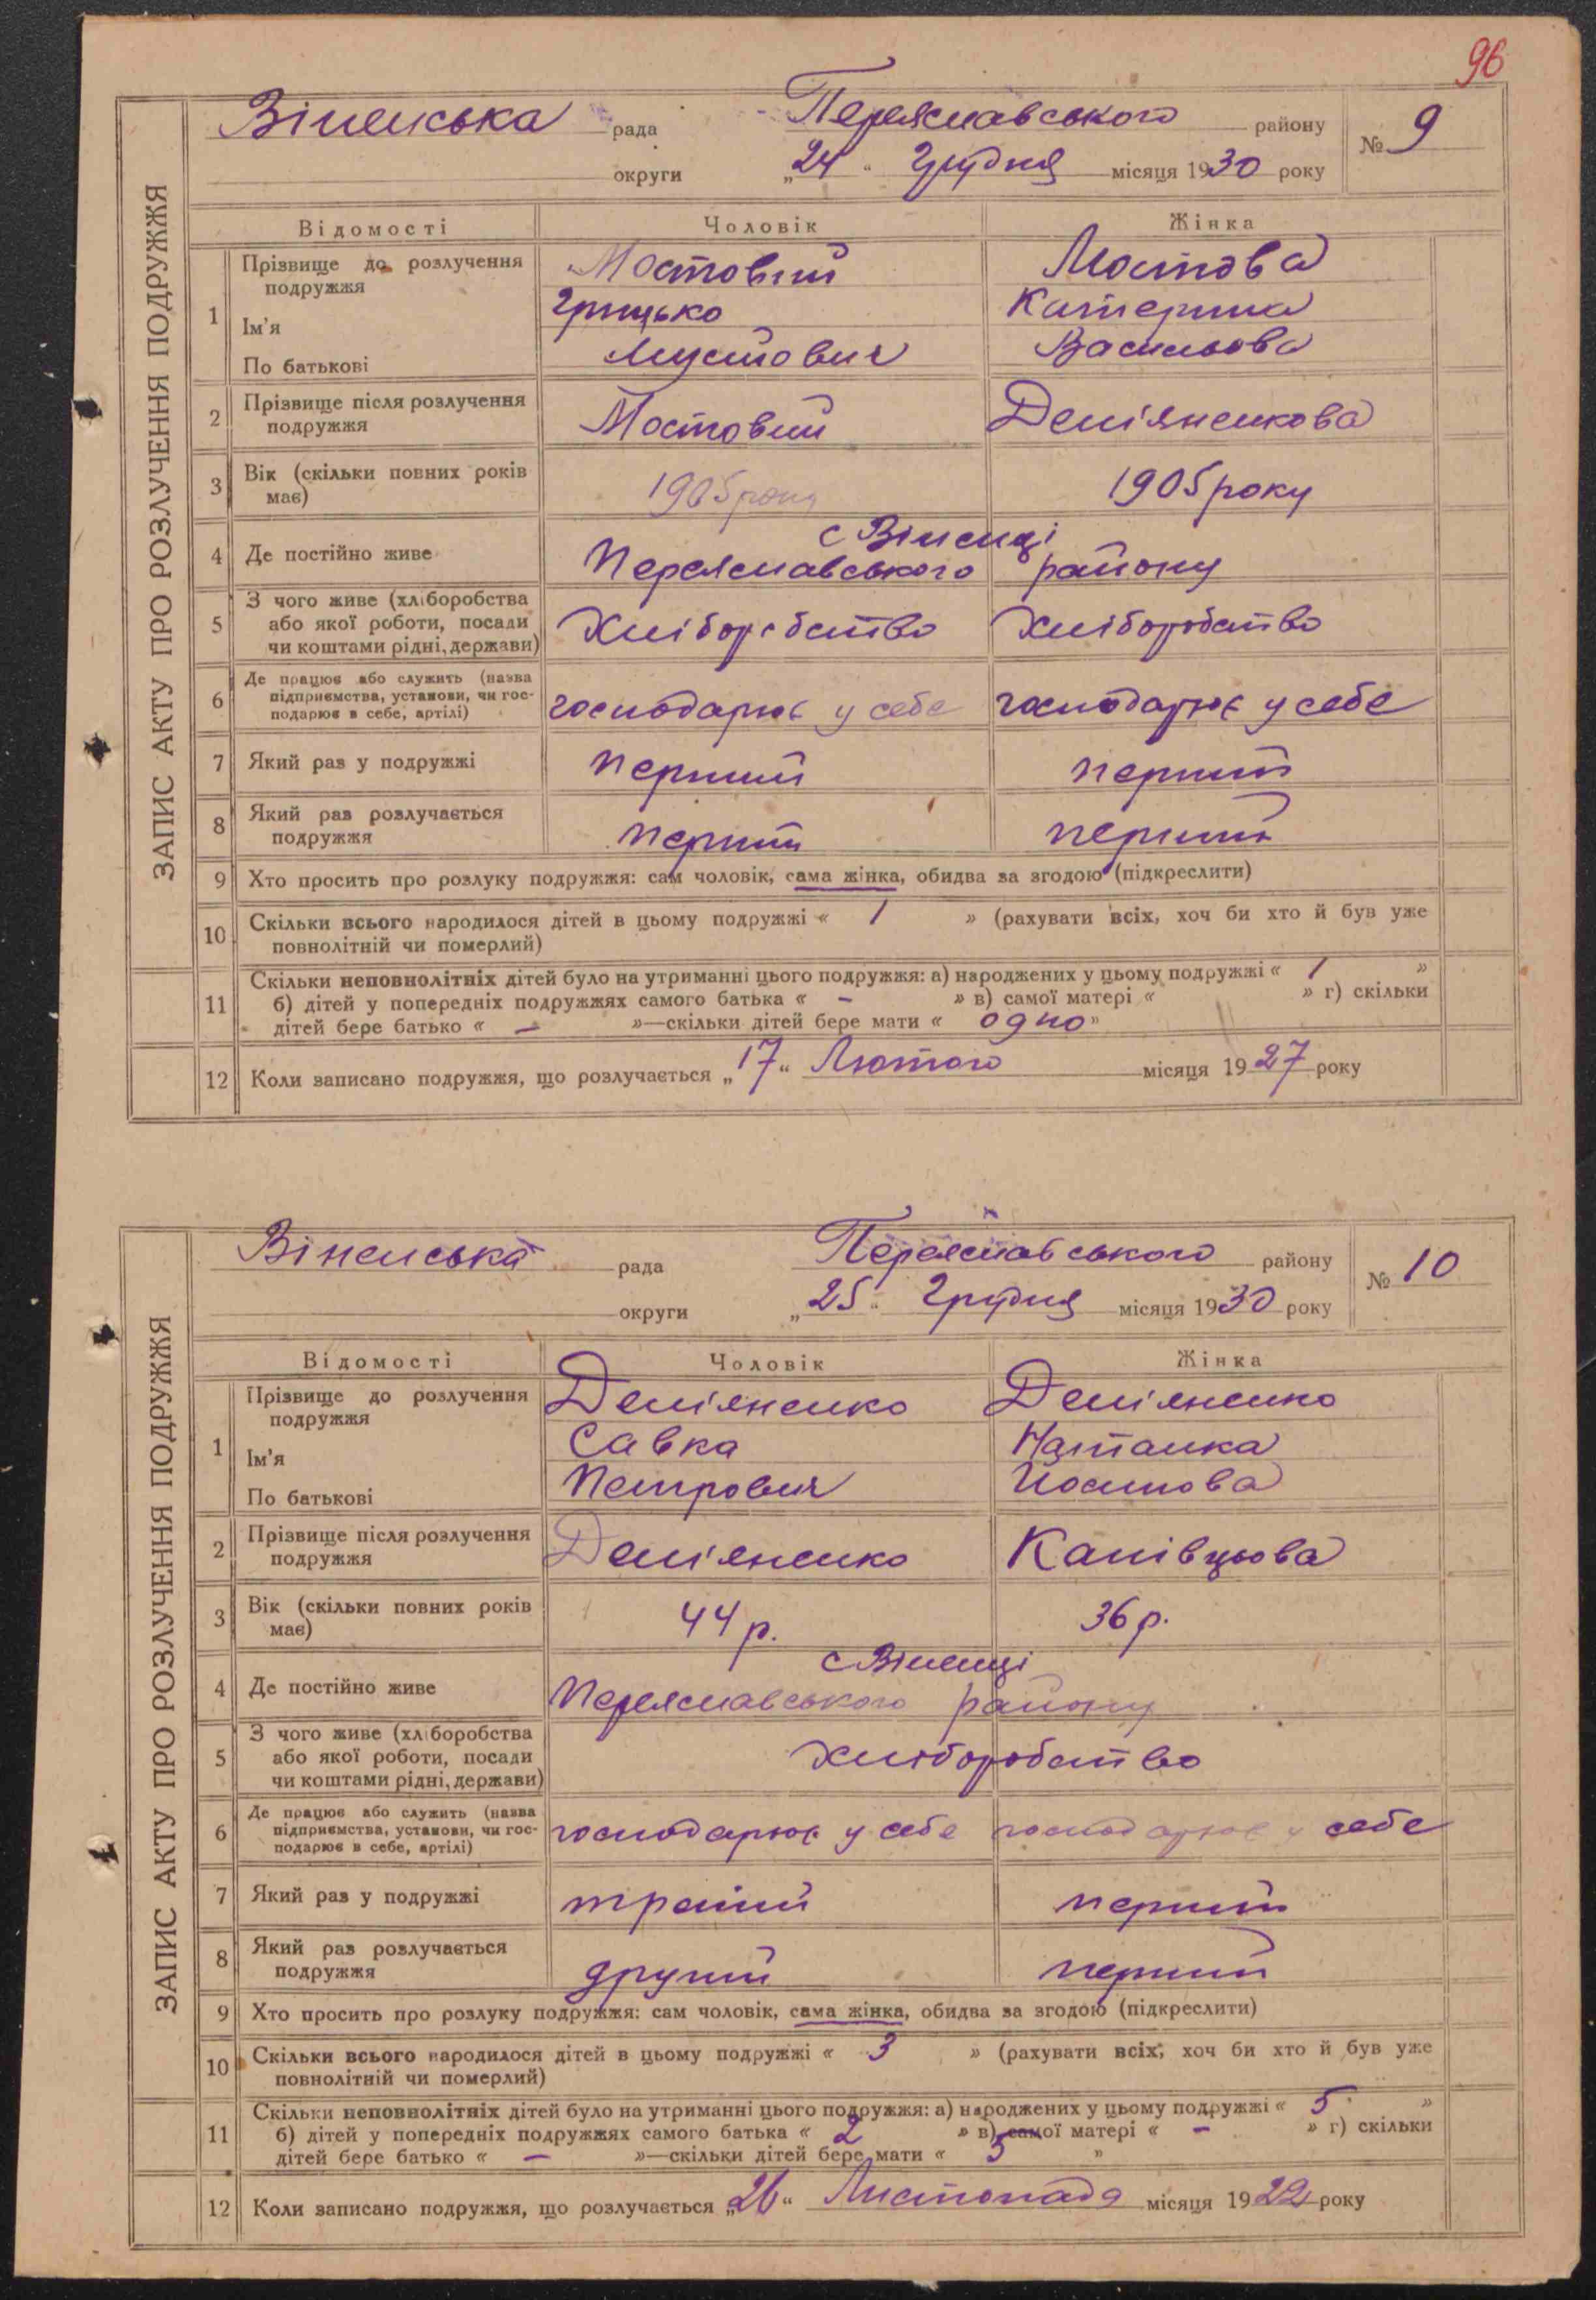 96
ЗАПИС АКТУ ПРО РОЗЛУЧЕННЯ ПОДРУЖЖЯ
Віненська рада Переяславського району № 9
округи „24“ Грудня місяця 1930 року
Відомості Чоловік Жінка
1 Прізвище до розлучення подружжя Мостовий Мостова
Ім'я Грицько Катерина
По батькові Васильова
2 Прізвище після розлучення подружжя Мостовий Демʼяненкова
3 Вік (скільки повних років має) 1905 року 1905 року
4 Де постійно живе с Віненці Переяславського району
5 З чого живе (хліборобства або якої роботи, посади чи коштами рідні, держави) Хліборобство Хліборобство
6 Де працює або служить (назва підприємства, установи, чи господарює в себе, артілі) господарює у себе господарює у себе
7 Який раз у подружжі перший перший
8 Який раз розлучається подружжя перший перший
9 Хто просить про розлуку подружжя: сам чоловік, сама жінка, обидва за згодою (підкреслити)
10 Скільки всього народилося дітей в цьому подружжі « 1 » (рахувати всіх, хоч би хто й був уже
повнолітній чи померлий)
11 Скільки неповнолітніх дітей було на утриманні цього подружжя: а) народжених у цьому подружжі « 1 »
б) дітей у попередніх подружжях самого батька « - » в) самої матері « » г) скільки
дітей бере батько « - »—скільки дітей бере мати « одно »
12 Коли записано подружжя, що розлучається „17“ Лютого місяця 1927 року
ЗАПИС АКТУ ПРО РОЗЛУЧЕННЯ ПОДРУЖЖЯ
Віненська рада Переяславського району № 10
округи „25“ Грудня місяця 1930 року
Відомості Чоловік Жінка
1 Прізвище до розлучення подружжя Демʼяненко Демʼяненко
Ім'я Савка Наталка
По батькові Петрович Йосипова
2 Прізвище після розлучення подружжя Демʼяненко Канівцьова
3 Вік (скільки повних років має) 44 р. 36 р.
4 Де постійно живе с Віненці Переяславського району
5 З чого живе (хліборобства або якої роботи, посади чи коштами рідні, держави) Хліборобство
6 Де працює або служить (назва підприємства, установи, чи господарює в себе, артілі) господарює у себе господарює у себе
7 Який раз у подружжі третій перший
8 Який раз розлучається подружжя другий перший
9 Хто просить про розлуку подружжя: сам чоловік, сама жінка, обидва за згодою (підкреслити)
10 Скільки всього народилося дітей в цьому подружжі « 3 » (рахувати всіх, хоч би хто й був уже
повнолітній чи померлий)
11 Скільки неповнолітніх дітей було на утриманні цього подружжя: а) народжених у цьому подружжі « 5 »
б) дітей у попередніх подружжях самого батька « 2 » в) самої матері « - » г) скільки
дітей бере батько « - »—скільки дітей бере мати « 3 »
12 Коли записано подружжя, що розлучається „26“ Листопада місяця 1922 року